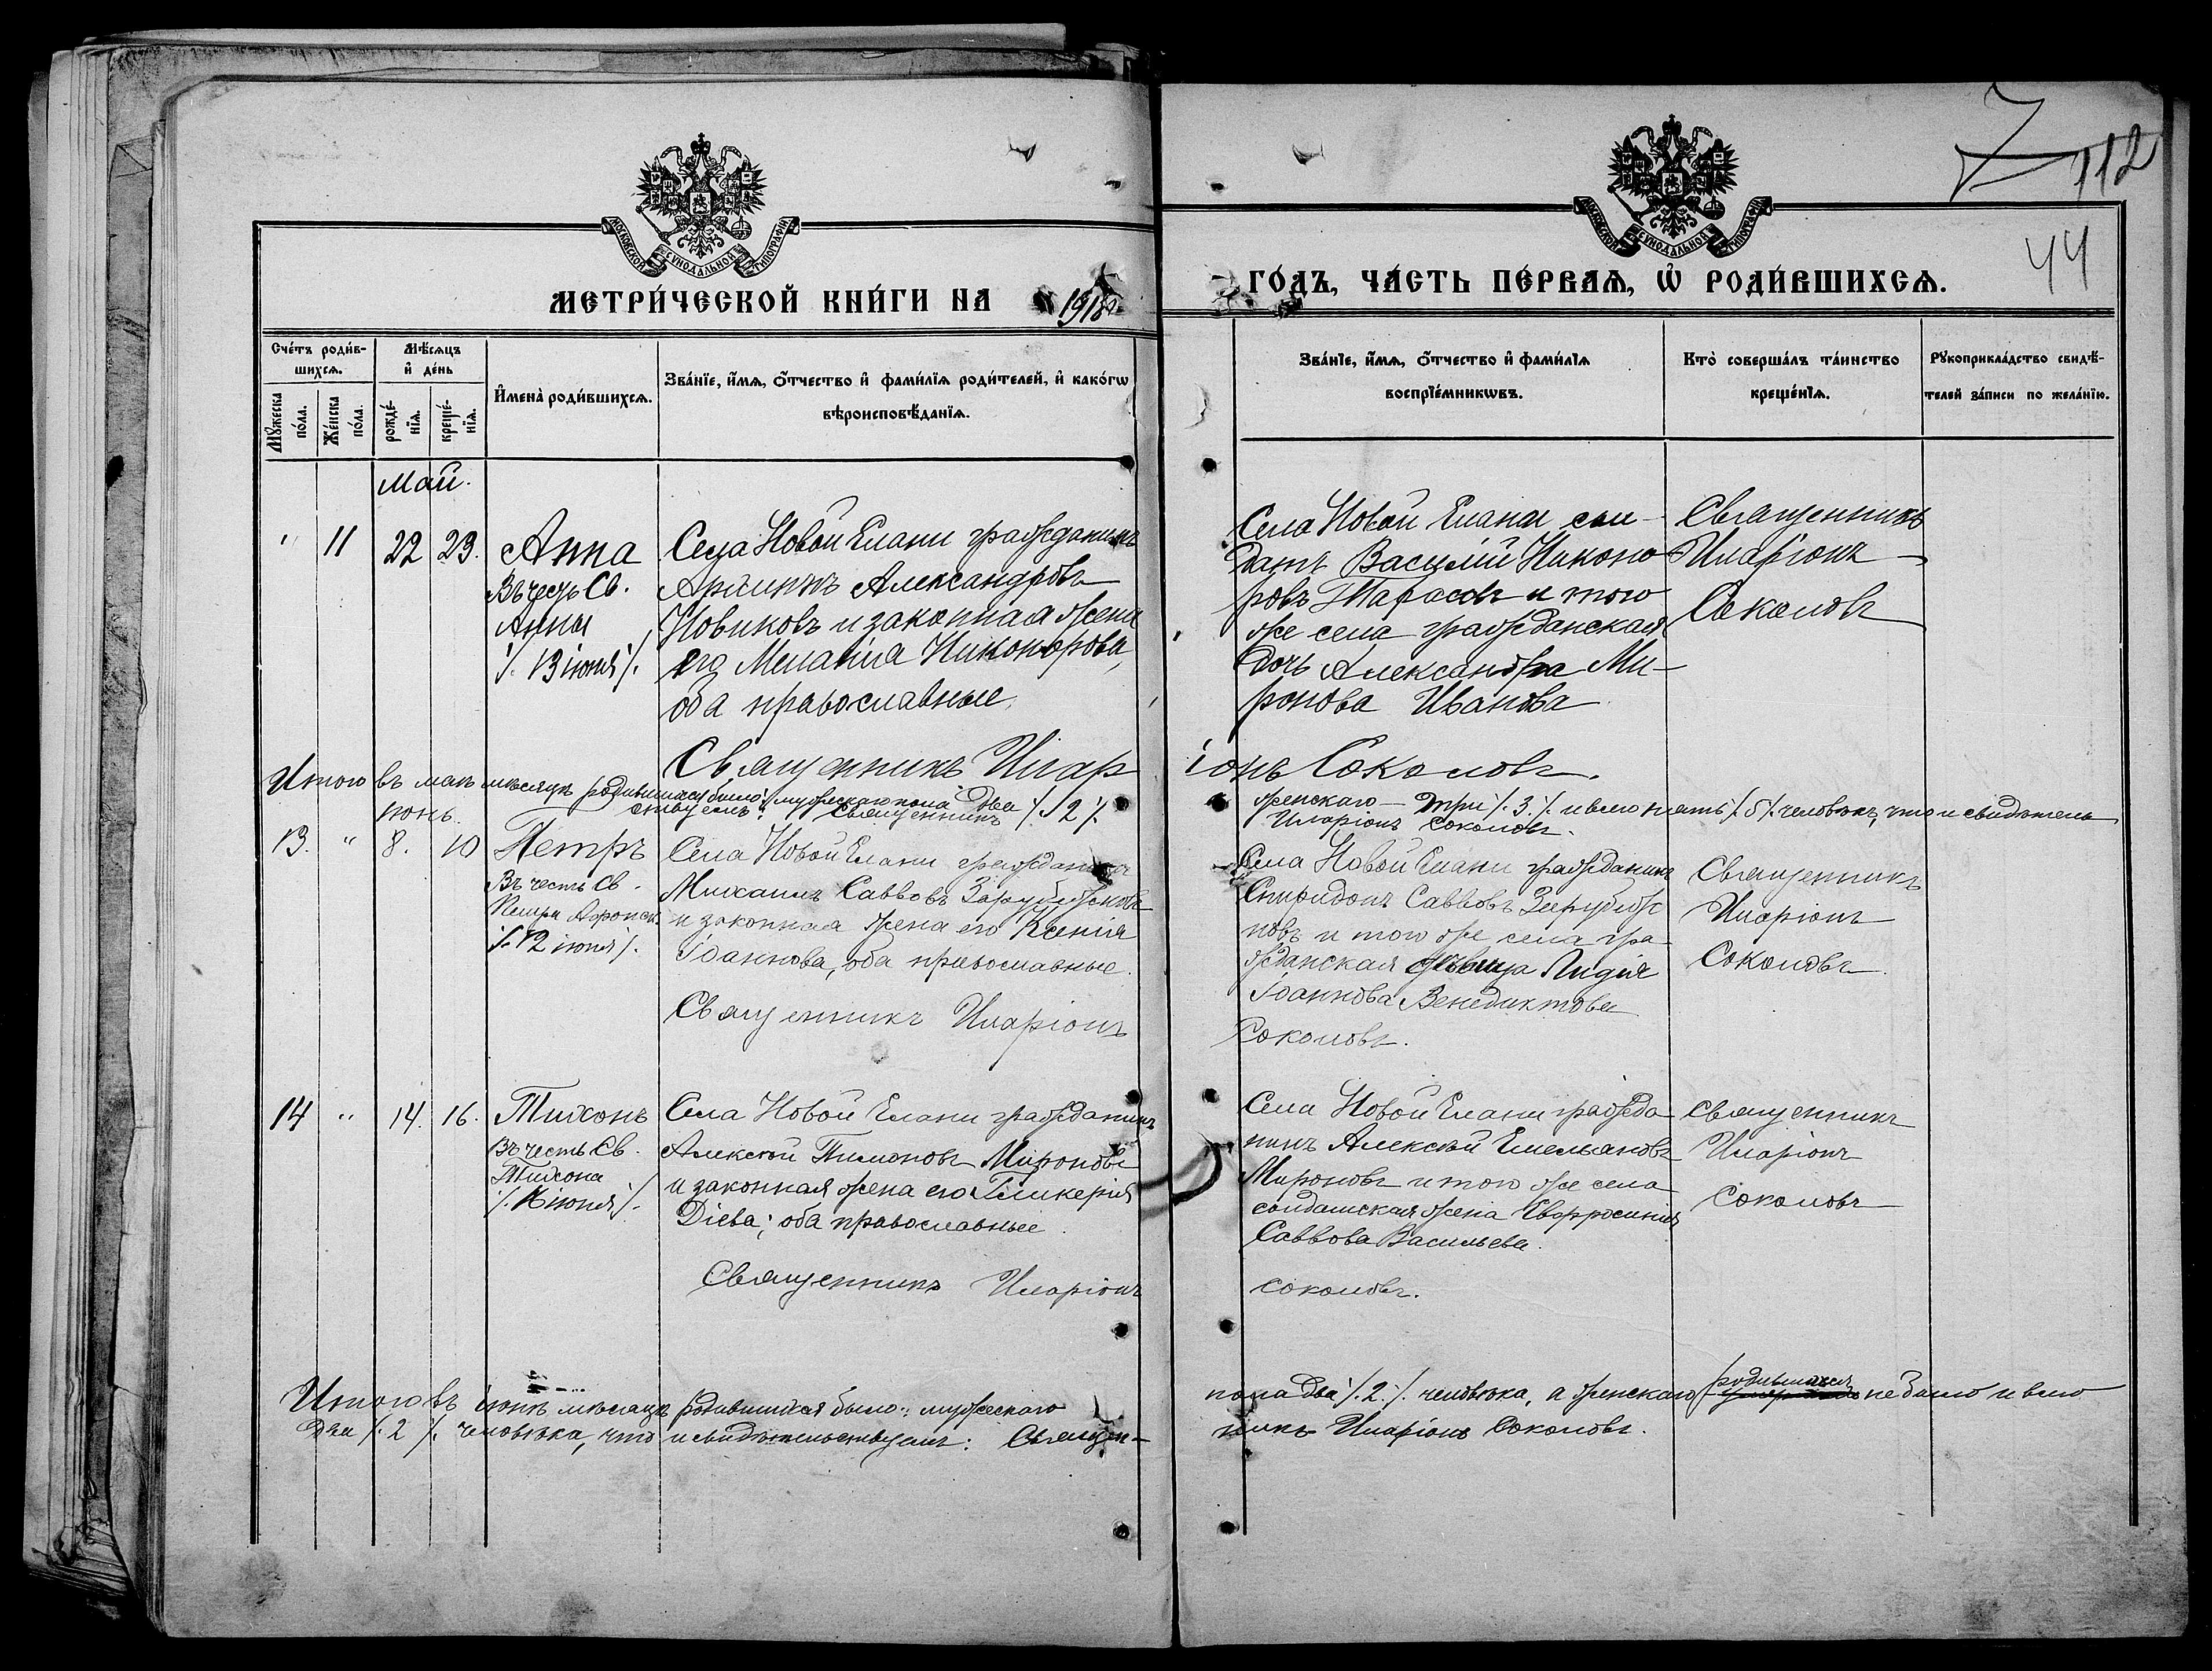 7
112
44
МОСКОВСКОЙ СѴНОДАЛЬНОЙ ТИПОГРАФІИ
МОСКОВСКОЙ СѴНОДАЛЬНОЙ ТИПОГРАФІИ
МЕТРИ́ЧЕСКОЙ КНИ́ГИ НА 1918
ГО́ДЪ, ЧА́СТЬ ПЕ́РВАѦ, Ѽ РОДИ́ВШИХСѦ.
Сче́тъ роди́в-
шихсѧ.
Мꙋ́жеска по́ла.
Же́нска по́ла.
Мѣ́сѧцъ и҆ де́нь
рожде́-нїѧ.
креще́-нїѧ.
И҆мена̀ роди́вшихсѧ.
Зва́нїе, и҆́мѧ, ѻ҆́тчество и҆ фами́лїѧ роди́телей, и҆ како́гѡ
вѣроисповѣ́данїѧ.
Зва́нїе, и҆́мѧ, ѻ҆́тчество и҆ фами́лїѧ
воспрїе́мникѡвъ.
Кто̀ соверша́лъ та́инство
креще́нїѧ.
Рꙋкоприкла́дство свидѣ́-
телей за́писи по жела́нїю.
Май.
" 11 22 23.
Анна
Въ честь Св.
Анны
/. 13 іюня /.
Села Новой Елани гражданинъ
Александровъ
Новиковъ и законная жена
его Меланія Никонорова,
оба православные.
Села Новой Елани сол-
датъ Василій Никоно-
ровъ Тарасовъ и того
же села гражданская
дочь Александра Ми-
ронова Иванова
Священникъ
Иларіонъ
Соколовъ
Священникъ Илар
іонъ Соколовъ.
Итого въ маѣ мѣсяцѣ родившихся было: мужескаго пола два /. 2 /.
женскаго — три /. 3 /. и всего пять /. 5 /. человѣкъ, что и свидѣтель
ствуемъ: Священникъ
Иларіонъ Соколовъ.
Іюнь.
13. " 8. 10
Петръ
Въ честь Св.
Петра Афонск.
/. 12 іюня /.
Села Новой Елани гражданинъ
Михаилъ Саввовъ Зарубежновъ
и законная жена его Ксенія
Іоаннова, оба православные.
Села Новой Елани гражданинъ
Спиридонъ Саввовъ Зарубеж
новъ и того же села гра-
жданская дѣвица Лидія
Іоаннова Венедиктова
Священникъ
Иларіонъ
Соколовъ.
Священникъ Иларіонъ
Соколовъ.
14 " 14. 16.
Тихонъ
Въ честь Св.
Тихона
/. 16 іюня /.
Села Новой Елани гражданинъ
Алексѣй Тимоновъ Мироновъ
и законная жена его Гликерія
Діева; оба православные.
Села Новой Елани гражда
нинъ Алексѣй Емельяновъ
Мироновъ и того же села
солдатская жена Евфросинія
Саввова Васильева.
Священникъ
Иларіонъ
Соколовъ
Священникъ Иларіонъ
Соколовъ.
Итого въ іюнѣ мѣсяцѣ родившихся было: мужескаго
пола два /. 2 /. человѣка, а женскаго родившихся не было и всего
два /. 2 /. человѣка, что и свидѣтельствуемъ: Священ-
никъ Иларіонъ Соколовъ.